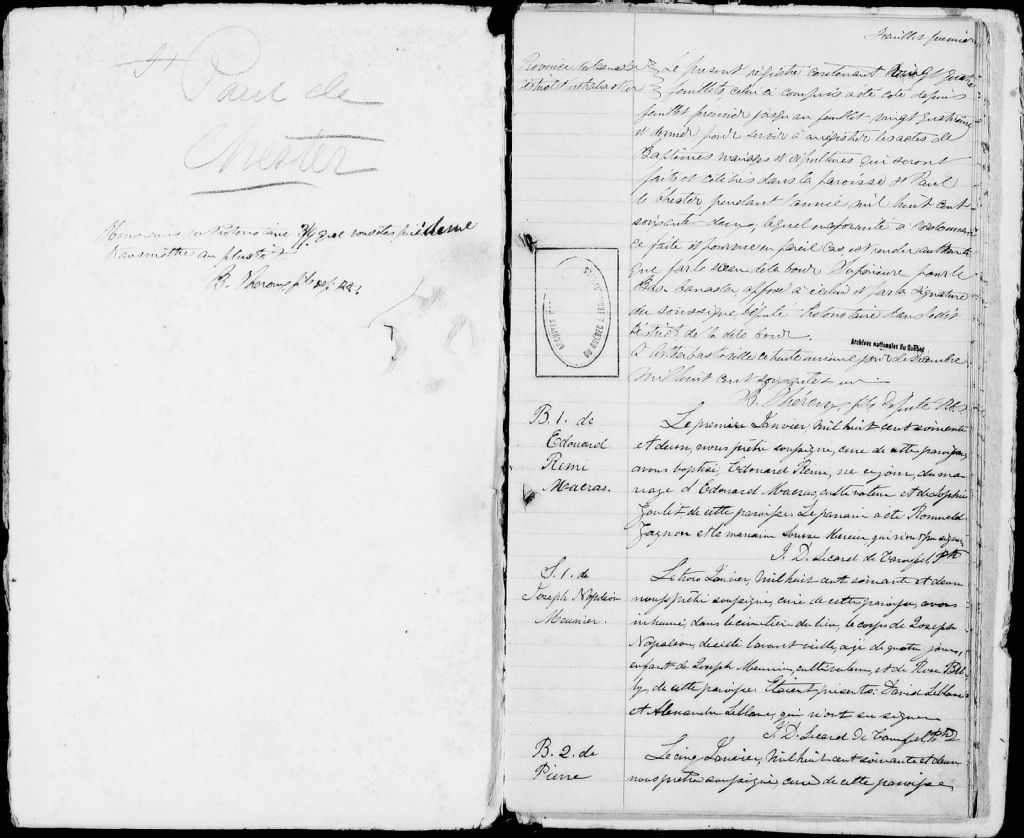 St
Paul de
Chester
Honoraires du Protonotaire que vous êtes prié de me
transmettre au plus tôt
B. Théroux fils dép.
Feuillet premier
Province du Canada
District d'Arthabaska
Le présent régistre contenant vingt quatre
feuillets, celui ci compris a été coté depuis
feuillet premier jusqu'au feuillet vingt quatrieme
et dernier pour servir à enregistrer les actes de
Baptêmes mariages et sépultures qui seront
faits et célébrés dans la paroisse St Paul
de Chester pendant l'année mil huit cent
soixante deux, lequel en conformité à l'ordonnance
ce faite et pourvue en pareil cas est rendu authenti
que par le sceau de la Cour Supérieure pour le
Bas Canada, apposé à celui ci et par la signature
du soussigné député Protonotaire dans le dit
District de la dite Cour.
Archives nationales du Québec
A Arthabaskaville ce trente unieme jour de Décembre
mil huit cent soixante et un
B. Théroux fils Député
B. 1. de
Edouard
Remi
Macras.
Le premier Janvier, mil huit cent soixante
et deux, nous prêtre soussigné, curé de cette paroisse,
avons baptisé, Edouard Remi, né ce jour, du ma-
riage d'Edouard Macras, cultivateur et de Sophie
Goulet de cette paroisse. Le parrain a été Romuald
Gagnon et la marraine Louise Mercier, qui n'ont pu signer.
J. D. Sicard de Carufel Ptre
S. 1. de
Joseph Napoléon
Meunier.
Le trois Janvier, mil huit cent soixante et deux
nous prêtre soussigné, curé de cette paroisse, avons
inhumé, dans le cimetière du lieu, le corps de Joseph
Napoléon, décédé l'avant veille, agé de quatre jours,
enfant de Joseph Meunier, cultivateur, et de Rose
de cette paroisse. Etaient présents: David Leblanc
et Alexandre Leblanc, qui n'ont su signer
J. D. Sicard de Carufel Ptre
B. 2. de
Pierre
Le cinq Janvier, mil huit cent soixante et deux
nous prêtre soussigné, curé de cette paroisse,